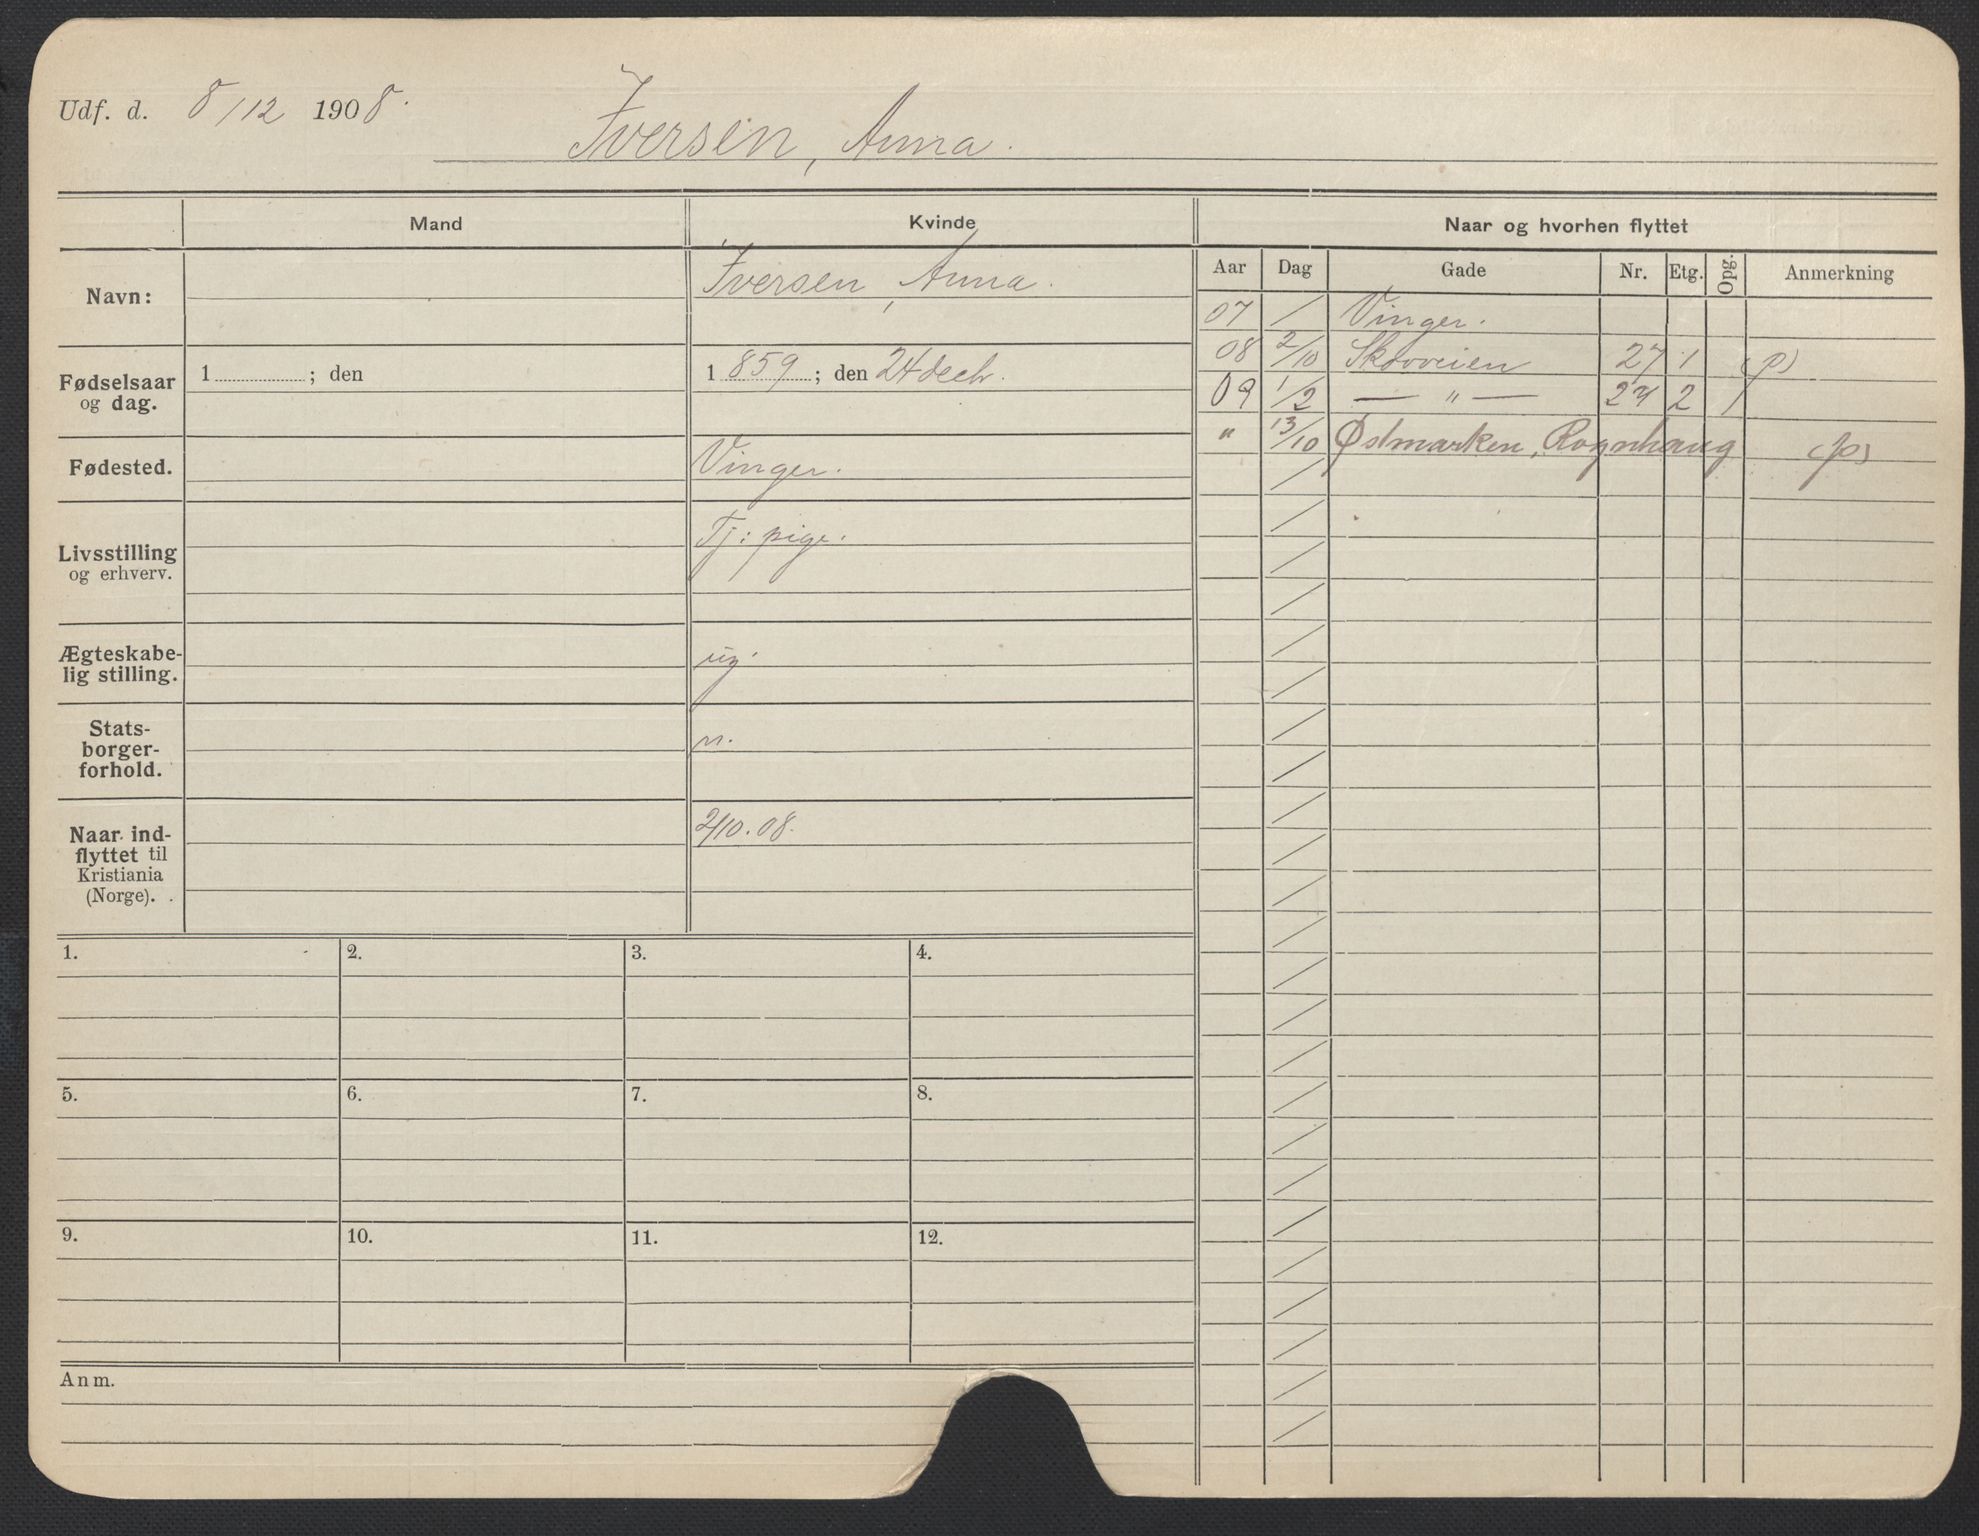 Udf. d. 8/12 1908.
Iversen, Anna.
Mand
Kvinde
Naar og hvorhen flyttet
Navn:
Iversen, Anna.
Fødselsaar
og dag.
1 ; den
1 859 ; den 24 decb.
Fødested.
Vinger.
Livsstilling
og erhverv.
Tj: pige.
Ægteskabe-
lig stilling.
ug.
Stats-
borger-
forhold.
n.
Naar ind-
flyttet til
Kristiania
(Norge).
2/10.08.
Aar Dag Gade Nr. Etg. Opg. Anmerkning
07 / Vinger.
08 2/10 Skovveien 27 1 (p)
09 1/2 — " — 27 2 1
" 13/10 Østmarken, Rognhaug (p)
1. 2. 3. 4.
5. 6. 7. 8.
9. 10. 11. 12.
Anm.